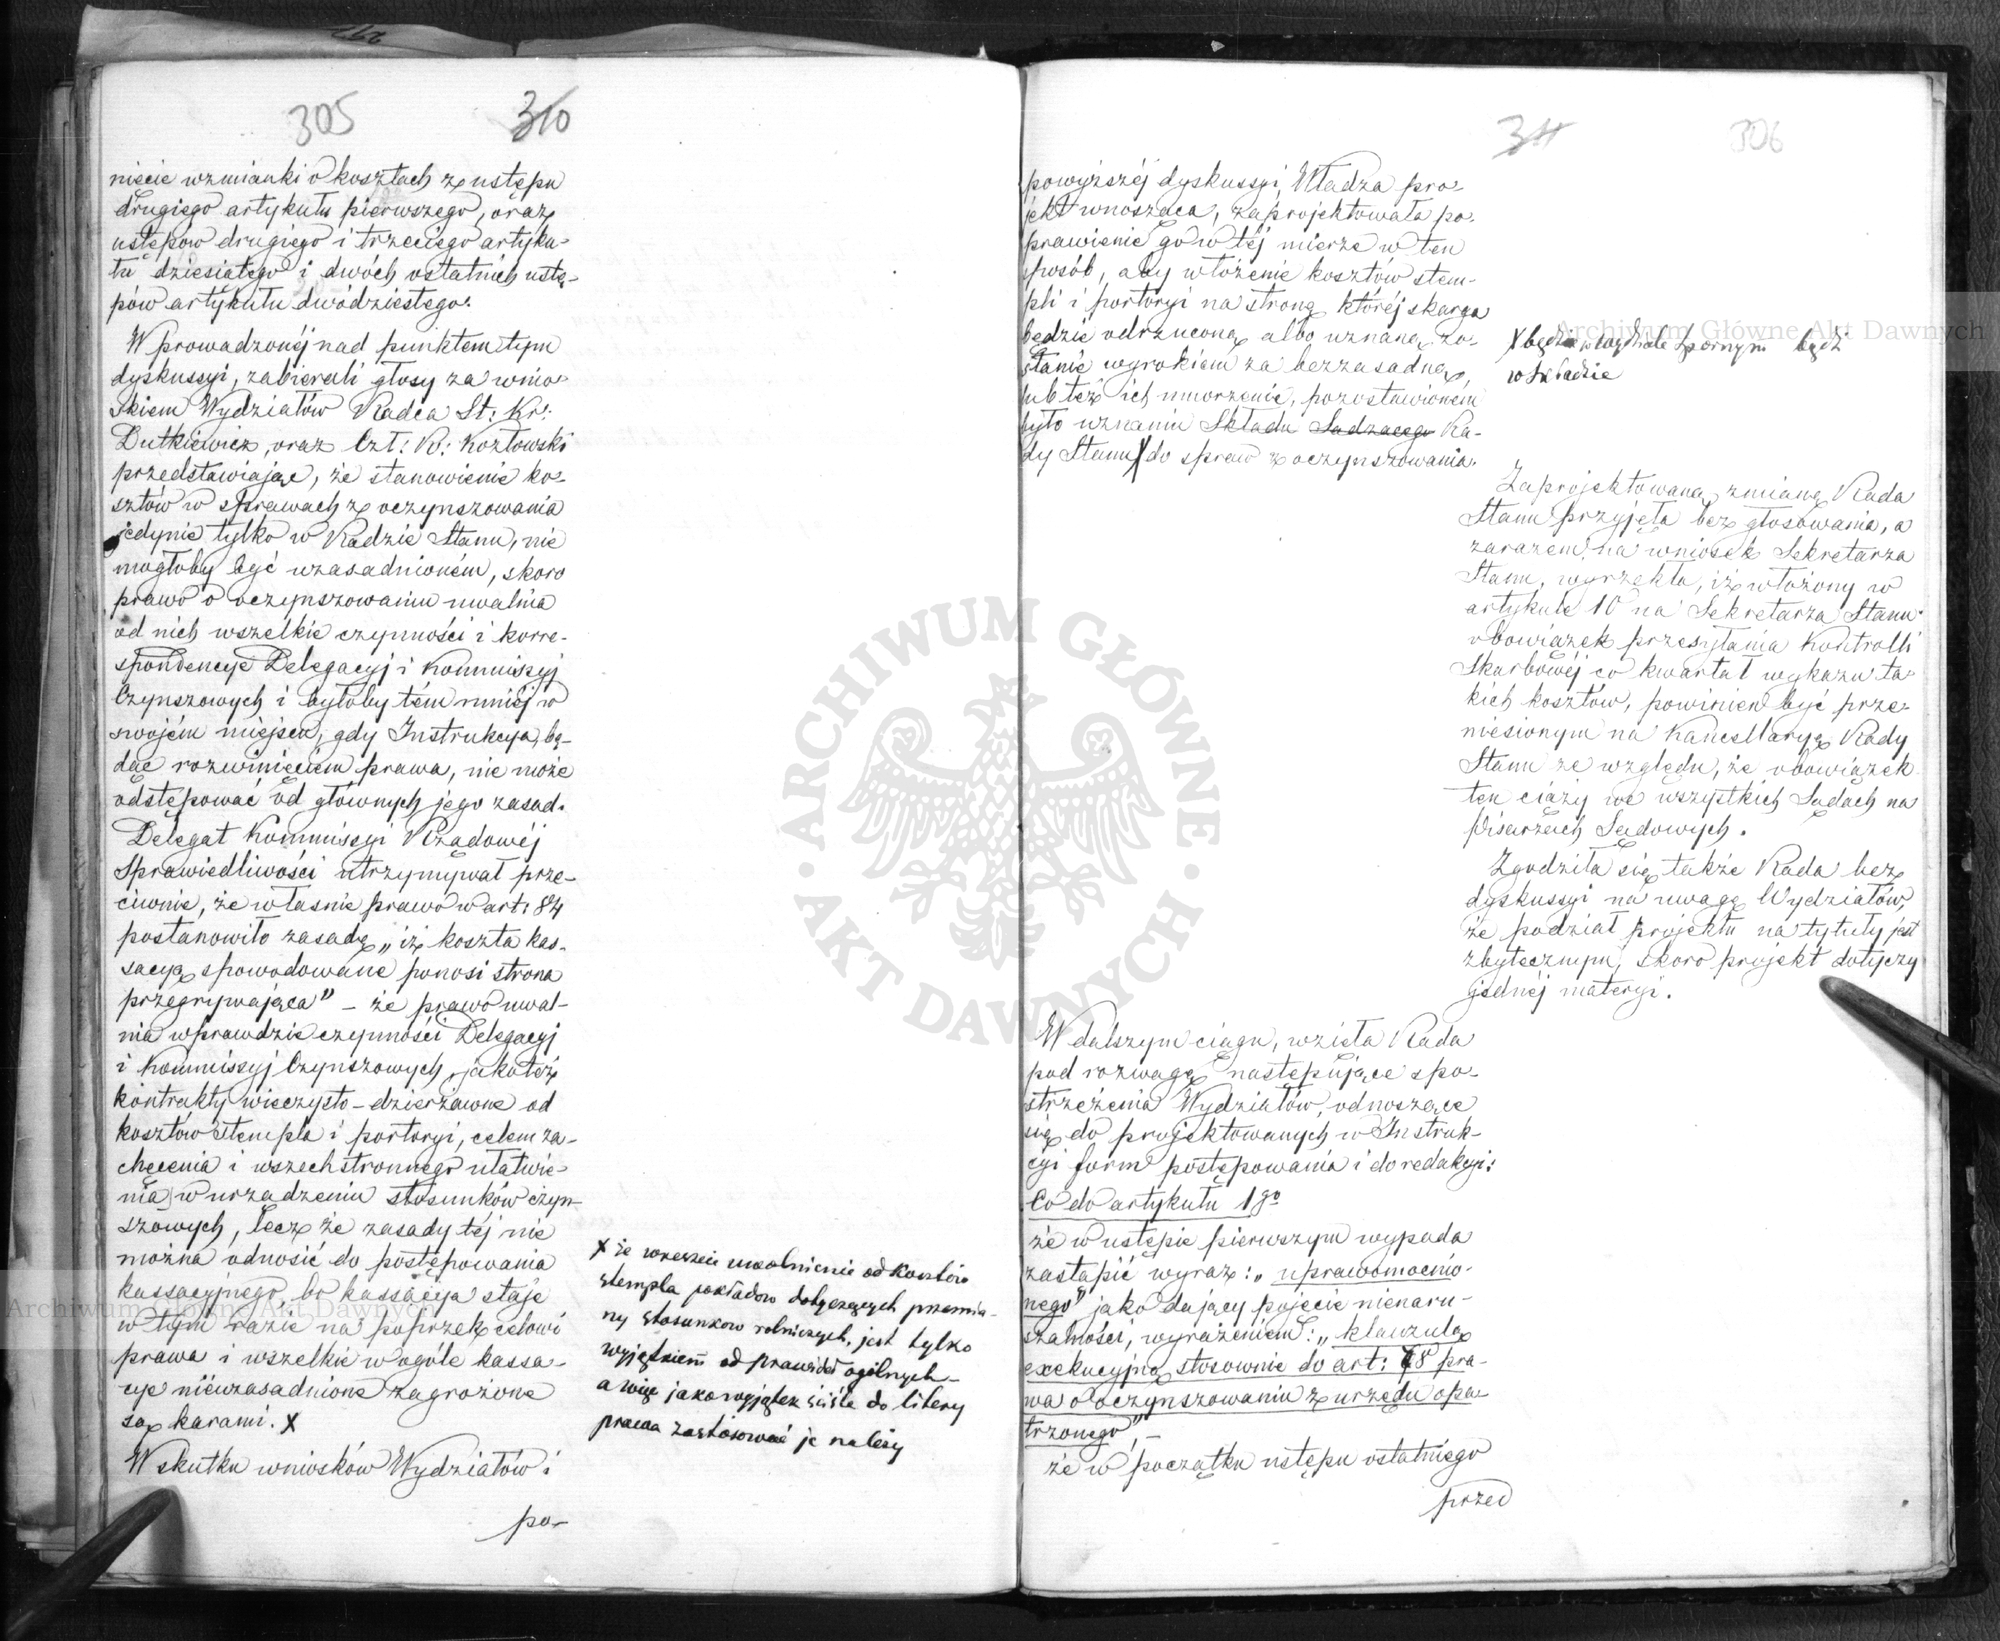 305
310
nięcie wzmianki o kosztach z ustępu
drugiego artykułu pierwszego, oraz
ustępów drugiego i trzeciego artyku-
łu dziesiątego i dwóch ostatnich ustę-
pów artykułu dwódziestego.
W prowadzonéj nad punktem tym
dyskussyi, zabierali głosy za wnio-
skiem Wydziałów Radca St: Kr:
Dutkiewicz, oraz Czł: R: Kozłowski
przedstawiając, że stanowienie ko-
sztów w sprawach z oczynszowania
jedynie tylko w Radzie Stanu, nie
mogłoby być uzasadnioném, skoro
prawo o oczynszowaniu uwalnia
od nich wszelkie czynności i korre-
spondencye Delegacyj i Kommissyj
Czynszowych i byłoby tém mniéj w
swojém miejscu, gdy Instrukcya, bę-
dąc rozwinięciem prawa, nie może
odstępować od głównych jego zasad.
Delegat Kommissyi Rządowéj
Sprawiedliwości utrzymywał prze-
ciwnie, że właśnie prawo w art: 84
postanowiło zasadę „iż koszta kas-
sacyą spowodowane ponosi strona
przegrywająca" – że prawo uwal-
nia wprawdzie czynności Delegacyj
i Kommissyj Czynszowych, jakoteż
kontrakty wieczysto-dzierżawne od
kosztów stempla i portoryi, celem za-
chęcenia i wszechstronnego ułatwie-
nia w urządzeniu stosunków czyn-
szowych, lecz że zasady téj nie
można odnosić do postępowania
kassacyjnego, bo kassacya staje
w tym razie na poprzek celowi
prawa i wszelkie w ogóle kassa-
cye nieuzasadnione zagrożone
są karami. X
W skutku wniosków Wydziałów i
po-
X że wreszcie uwolnienie od kosztów
stempla układow dotyczących przemia-
ny stosunkow rolniczych, jest tylko
wyjątkiem od prawideł ogólnych –
a więc jako wyjątek ściśle do litery
prawa zastosować je należy
311
306
powyższéj dyskussyi, Władza pro-
jekt wnosząca, zaprojektowała po-
prawienie go w téj mierze w ten
sposób, aby włożenie kosztów stem-
pli i portoryi na stronę któréj skarga
będzie odrzuconą albo uznaną zo-
stanie wyrokiem za bezzasadną,
lub téż ich umorzenie, pozostawioném
było uznaniu Składu Sądzącego Ra-
dy Stanu X do spraw z oczynszowania.
X bądź w wydziale Spornym bądź
w Składzie
Zaprojektowaną zmianę Rada
Stanu przyjęła bez głosowania, a
zarazem na wniosek Sekretarza
Stanu, wyrzekła, iż włożony w
artykule 10 na Sekretarza Stanu
obowiązek przesyłania Kontrolli
Skarbowéj co kwartał wykazu ta-
kich kosztów, powinien być prze-
niesionym na Kancellaryą Rady
Stanu ze względu, że obowiązek
ten ciąży we wszystkich Sądach na
Pisarzach Sądowych.
Zgodziła się także Rada bez
dyskussyi na uwagę Wydziałów,
że podział projektu na tytuły jest
zbytecznym, skoro projekt dotyczy
jednéj materyi.
W dalszym ciągu, wzięła Rada
pod rozwagę następujące spo-
strzeżenia Wydziałów, odnoszące
się do projektowanych w Instruk-
cyi form postępowania i do redakcyi:
Co do artykułu 1go
że w ustępie pierwszym wypada
zastąpić wyraz: „uprawomocnio-
nego" jako dający pojęcie nienaru-
szalności, wyrażeniem: „klauzulą
exekucyjną stosownie do art: 78 pra-
wa o oczynszowaniu z urzędu opa-
trzonego", –
że w początku ustępu ostatniego
przed
ARCHIWUM GŁÓWNE AKT DAWNYCH
Archiwum Główne Akt Dawnych
Archiwum Główne Akt Dawnych